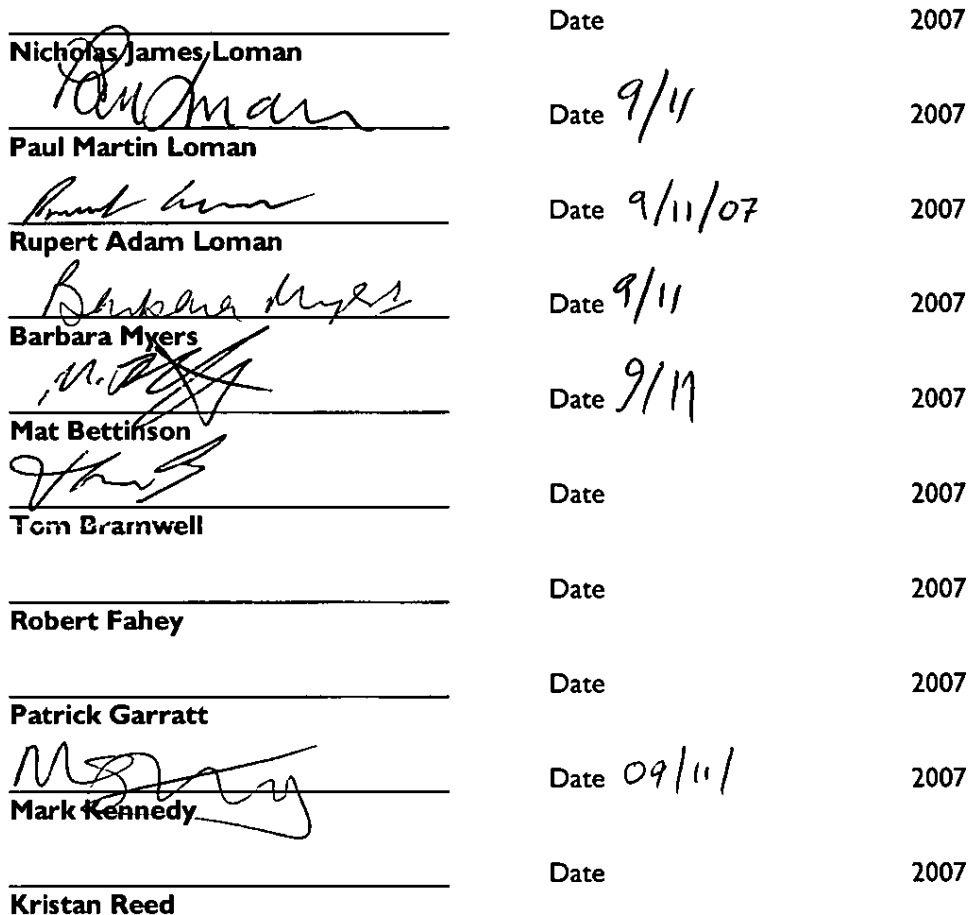 Date 2007
Nicholas James Loman
Date 9/11 2007
Paul Martin Loman
Date 9/11/07 2007
Rupert Adam Loman
Barbara Myers Date 9/11 2007
Barbara Myers
Date 9/11 2007
Mat Bettinson
Date 2007
Tom Bramwell
Date 2007
Robert Fahey
Date 2007
Patrick Garratt
Date 09/11/ 2007
Mark Kennedy
Date 2007
Kristan Reed